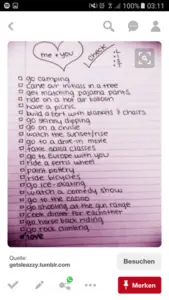 100%
03:11
me + you
check
go camping
carve our initials in a tree
get matching pajama pants
ride on a hot air balloon
have a picnic
build a fort with blankets & chairs
go skinny dipping
go on a cruise
watch the sunset/rise
go to a drive-in movie
take salsa classes
go to Europe with you
ride a ferris wheel
paint pottery
ride bicycles
go ice-skating
watch a comedy show
go to the casino
go shooting at the gun range
cook dinner for eachother
go horse back riding
go rock climbing
Quelle:
getsleazzy.tumblr.com
Besuchen
Merken